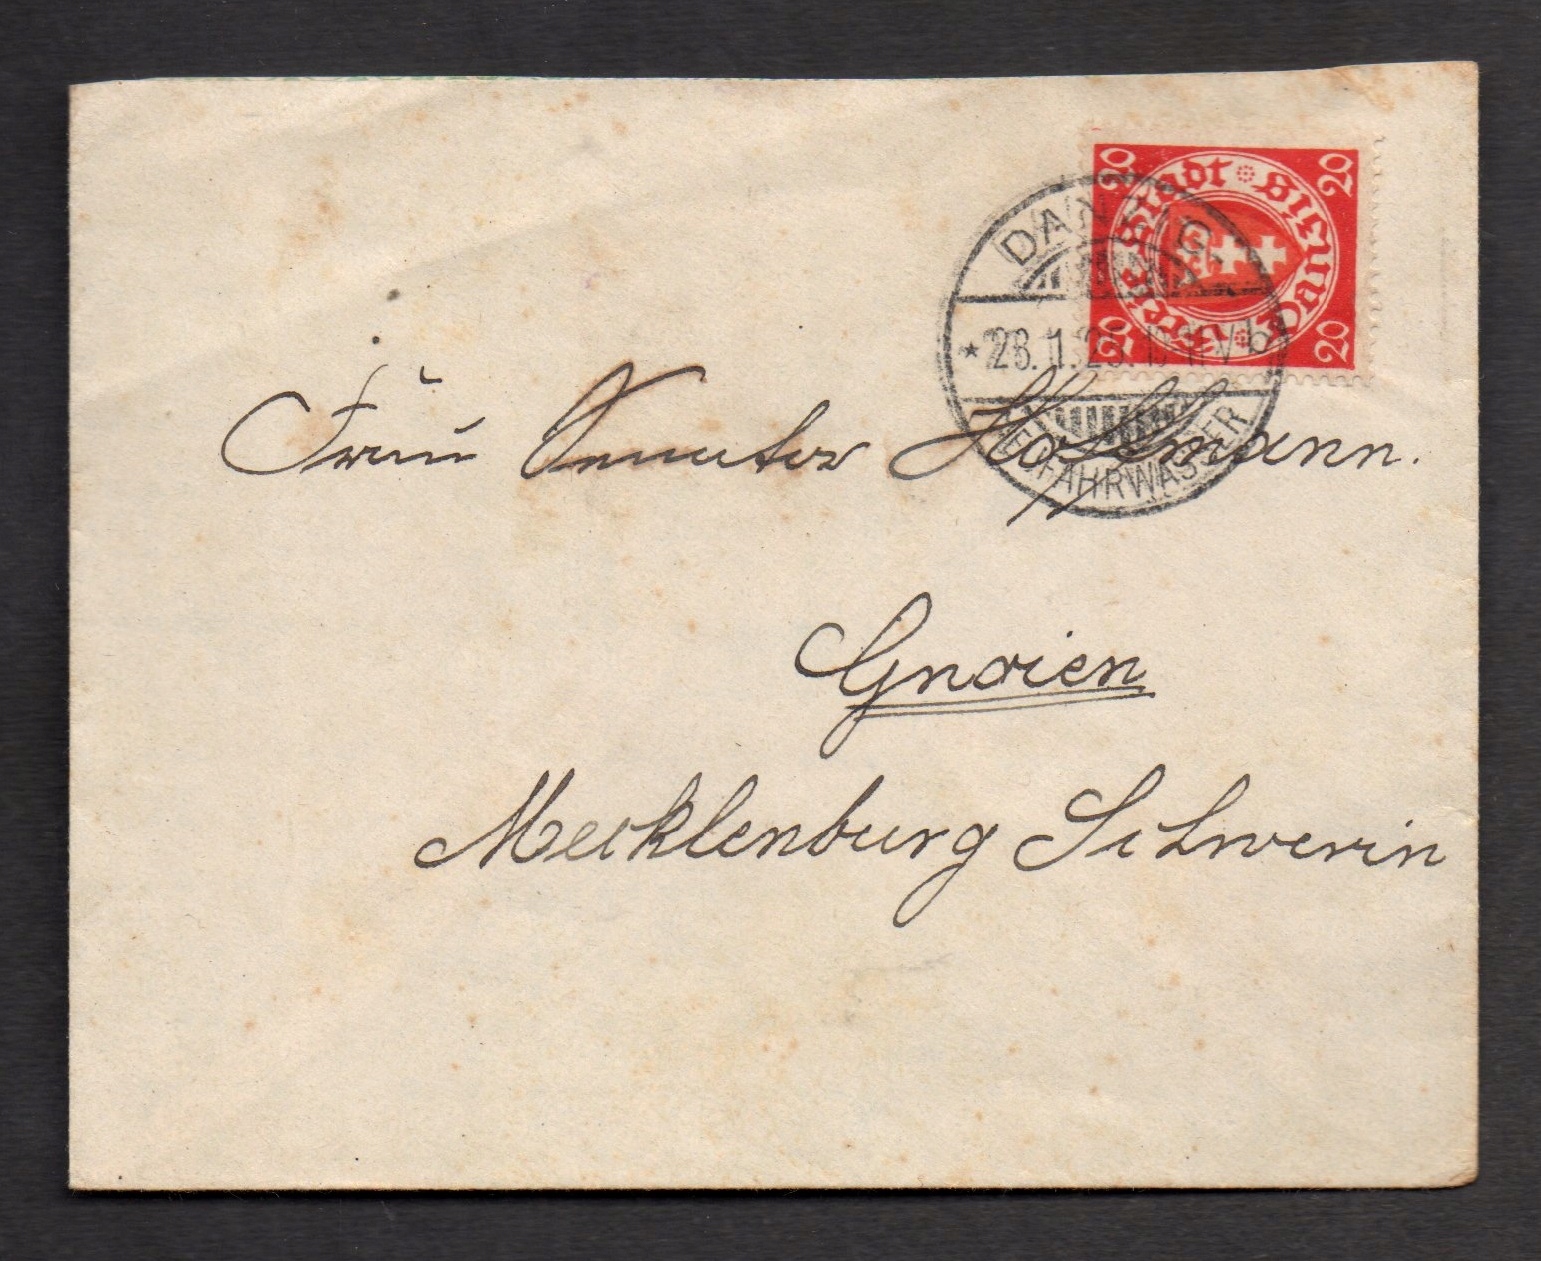 Freie Stadt Danzig
20 20
20 20
DANZIG
NEUFAHRWASSER
Frau Senator
Gnoien
Mecklenburg Schwerin